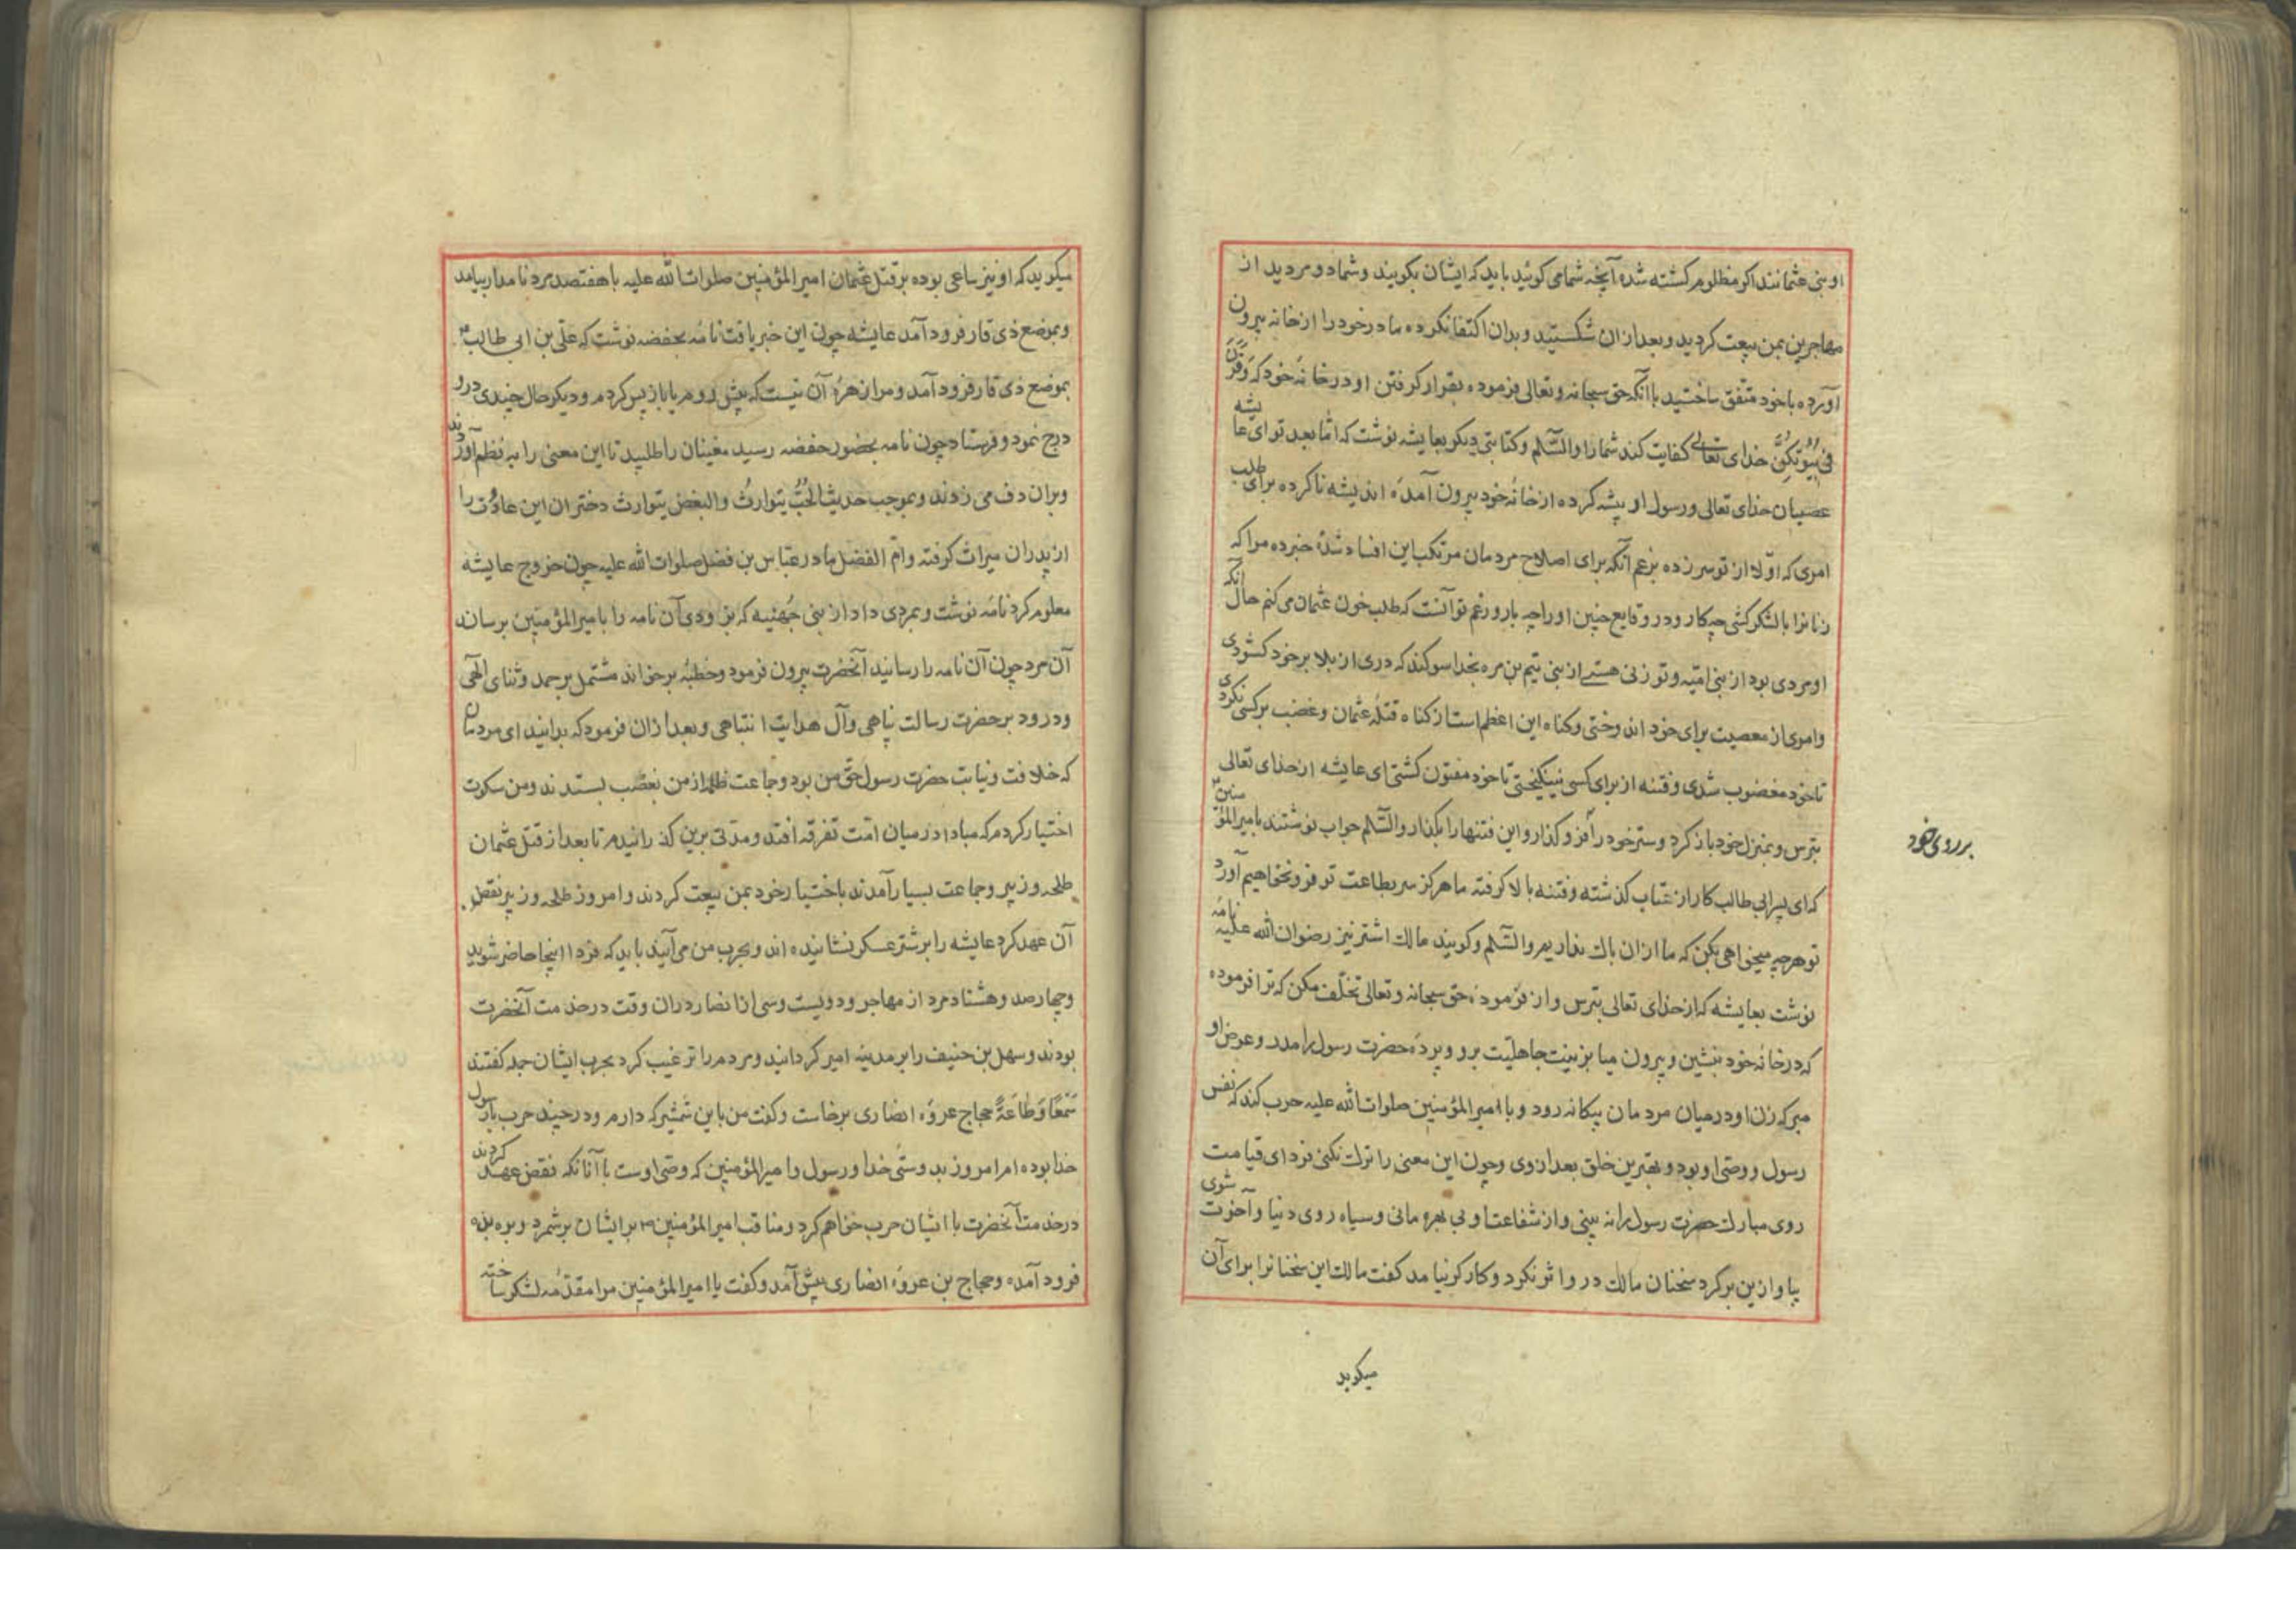 او بنی عثمانند اکر مظلوم کشته شده آنچه شما می کوئید باید که ایشان بکویند و شما دو مردید از
مهاجرین بمن بیعت کردید و بعد از ان شکستید و بدان اکتفا نکرده مادر خود را از خانه بیرون
آورده با خود متفق ساختید با آنکه حق سبحانه و تعالی فرموده بقرار کرفتن او در خانهٔ خود که وَقَرْنَ
فی بُیُوتِکُنَّ خدای تعالی کفایت کند شما را والسّلم و کتابتی دیکر بعایشه نوشت که امّا بعد تو ای عایشه
عصیان خدای تعالی و رسول او پیشه کرده از خانهٔ خود بیرون آمدهٔ اندیشه ناکرده برای طلب
امری که اوّلا از تو سر زده بزعم آنکه برای اصلاح مردمان مرتکب این افساد شدهٔ خبر ده مرا که
زنانرا با لشکر کشی چه کار و در وقایع چنین او را چه بار و زعم تو آنست که طلب خون عثمان می کنم حال آنکه
او مردی بود از بنی امیّه و تو زنی هستی از بنی تیم بن مره بخدا سوکند که دری از بلا بر خود کشودی
و امری از معصیت برای خود اندوختی و کناه این اعظم است از کناه قتلهٔ عثمان و غضب بر کسی نکردی
تا خود مغضوب شدی و فتنه از برای کسی نینکیختی تا خود مفتون کشتی ای عایشه از خدای تعالی
بترس و بمنزل خود باز کرد و ستر خود را فرو کذار و این فتنها را بکذار والسّلم جواب نوشتند بامیر المؤمنین
بر روی خود
که ای پسر ابی طالب کار از عتاب کذشته و فتنه بالا کرفته ما هرکز سر بطاعت تو فرو نخواهیم آورد
تو هرچه میخواهی بکن که ما از ان باک نداریم والسّلم و کویند مالک اشتر نیز رضوان الله علیه نامه
نوشت بعایشه که از خدای تعالی بترس و از فرمودهٔ حق سبحانه و تعالی تخلّف مکن که ترا فرموده
که در خانهٔ خود بنشین و بیرون میا بزینت جاهلیّت برو و پردهٔ حضرت رسول را مدر و عرض او
مبر که زن او در میان مردمان بیکانه رود و با امیر المؤمنین صلوات الله علیه حرب کند که نفس
رسول و وصّی او بود و بهترین خلق بعد از وی و چون این معنی را ترک نکنی فردای قیامت
روی مبارک حضرت رسول را نه بینی و از شفاعت او بی بهره مانی و سیاه روی دنیا و آخرت شوی
بیا و ازین برکرد سخنان مالک در و اثر نکرد و کارکر نیامد کفت مالک این سخنانرا برای آن
میکوید
میکوید که او نیز ساعی بوده بر قتل عثمان امیر المؤمنین صلوات الله علیه با هفتصد مرد نامدار بیامد
و بموضع ذی قار فرود آمد عایشه چون این خبر یافت نامهٔ بحفضه نوشت که علی بن ابی طالب
بموضع ذی قار فرود آمد و مرا زهرهٔ آن نیست که پیش روم یا باز پس کردم و دیکر حال چندی درو
درج نمود و فرستاد چون نامه بحضور حفضه رسید مغینان را طلبید تا این معنی را به نظم آوردند
و بران دف می زدند و بموجب حدیث الحُبُّ یتوارثُ والبغض یتوارث دختران این عداوت را
از پدران میراث کرفته و امّ الفضل مادر عبّاس بن فضل صلوات الله علیه چون خروج عایشه
معلوم کرد نامهٔ نوشت و بمردی داد از بنی جُهنیه که بزودی آن نامه را بامیر المؤمنین برساند
آن مرد چون آن نامه را رسانید آنحضرت بیرون فرمود و خطبهٔ برخواند مشتمل بر حمد و ثنای الٓهی
و درود بر حضرت رسالت پناهی و آل هدایت انتباهی و بعد از ان فرمود که بدانید ای مردمان
که خلافت و نیابت حضرت رسول حق من بود و جماعت ظلم از من بغصب بستدند و من سکوت
اختیار کردم که مبادا در میان امّت تفرقه افتد و مدّتی برین کذرانیدم تا بعد از قتل عثمان
طلحه و زبیر و جماعت بسیار آمدند باختیار خود بمن بیعت کردند و امروز طلحه و زبیر نقض
آن عهد کرد عایشه را بر شتر عسکر نشانیده اند و بحرب من می آیند باید که فردا اینجا حاضر شوید
و چهارصد و هشتاد مرد از مهاجر و دویست و سی از انصار دران وقت در خدمت آنحضرت
بودند و سهل بن حنیف را بر مدینه امیر کردانید و مردم را ترغیب کرد بحرب ایشان جمله کفتند
سَمعًا وَطاعَةً حجاج عروهٔ انصاری برخاست و کفت من با این شمشیر که دارم و در چند حرب با رسول
خدا بوده ام امروز بدوستی خدا و رسول و امیر المؤمنین که وصّی اوست با آنانکه نقض عهد کردند
در خدمت آنحضرت با ایشان حرب خواهم کرد و مناقب امیر المؤمنین بر ایشان برشمرد و بربذه
فرود آمده و حجاج بن عروهٔ انصاری پیش آمد و کفت یا امیر المؤمنین مرا مقدّمهٔ لشکر ساخته